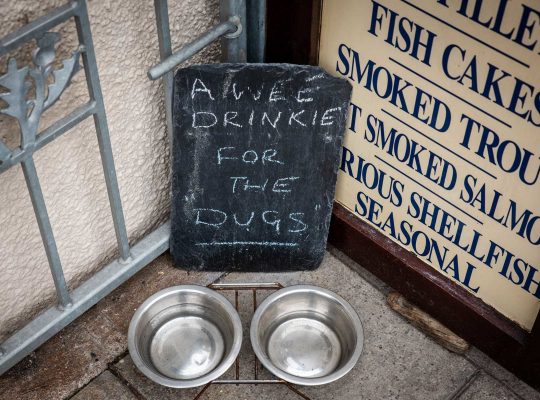 A WEE
DRINKIE
FOR
THE
"DUGS"
FISH CAKES
SMOKED
SMOKED SALMO
SHELLFISH
SEASONAL